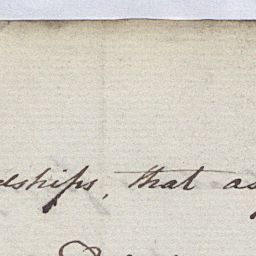 dships, that as